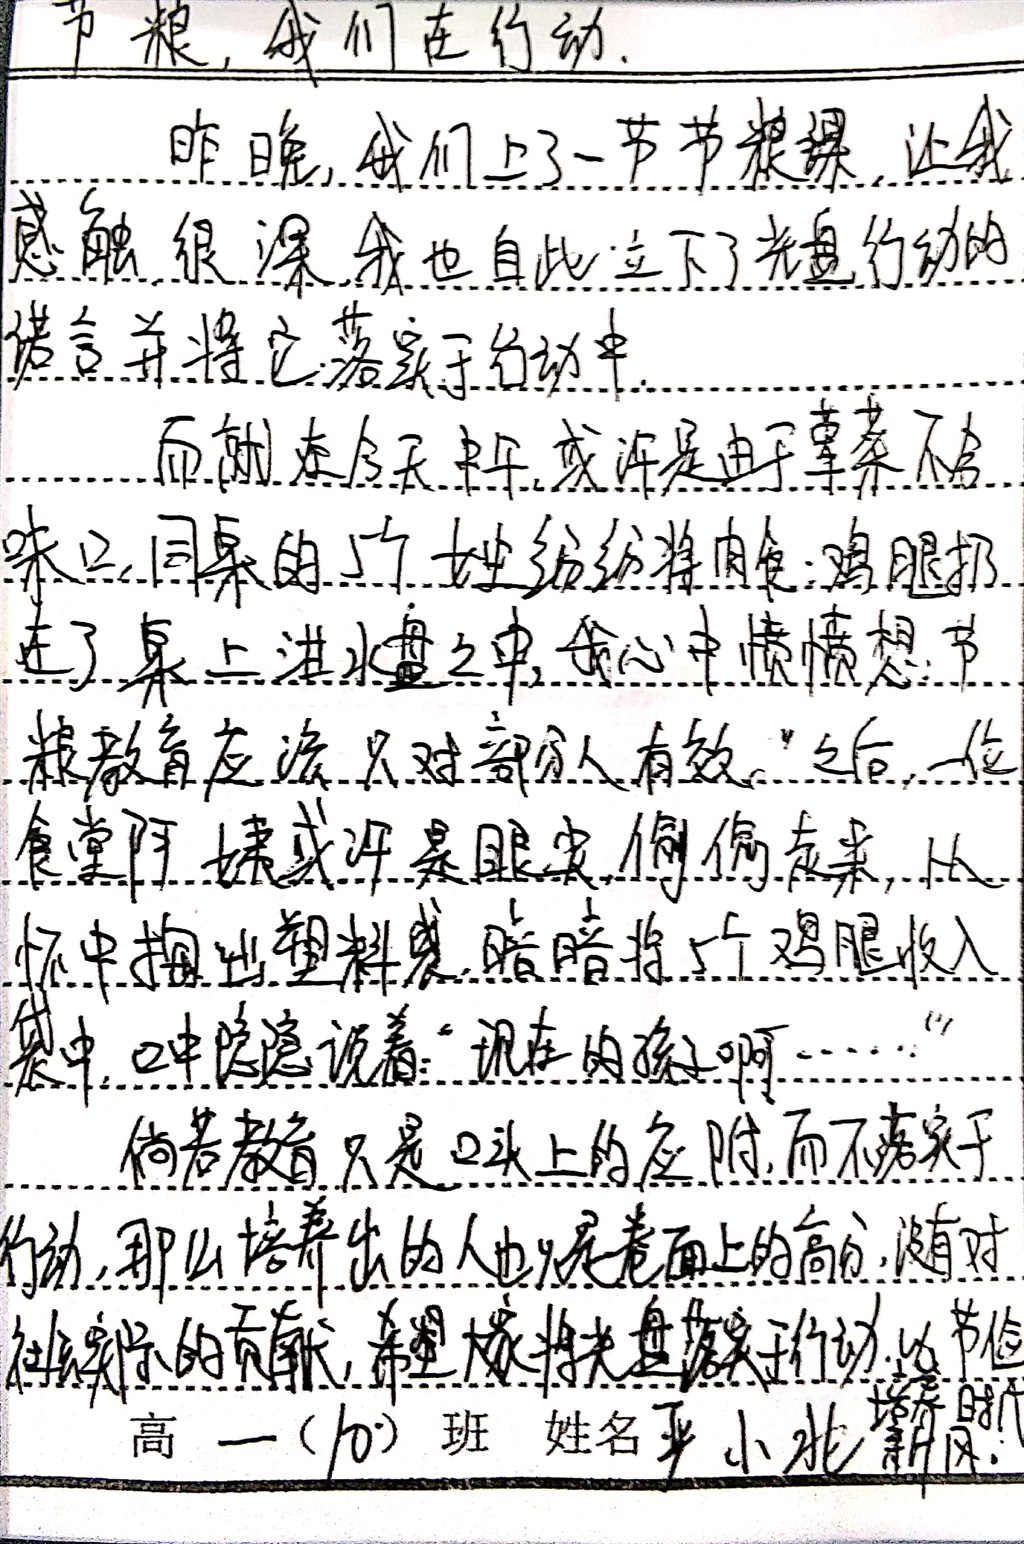 节粮，我们在行动.
昨晚，我们上了一节节粮课，让我
感触很深，我也自此立下了光盘行动的
诺言并将它落实于行动中.
而就在今天中午，或许是由于荤菜不合
味口，同桌的5个女生纷纷将肉食：鸡腿扔
进了桌上洪水盘之中，我心中愤愤想：节
粮教育应该只对部分人有效。”之后，一位
食堂阿姨或许是眼尖，偷偷走来，从
怀中掏出塑料袋，暗暗将5个鸡腿收入
袋中，口中隐隐说着：“现在的孩子啊……”
倘若教育只是口头上的应附，而不落实于
行动，那么培养出的人也只是卷面上的高分，没有对
社会实际的贡献，希望大家将光盘落实于行动，以节俭
培养时代
高一（10）班 姓名 平小北 新风.